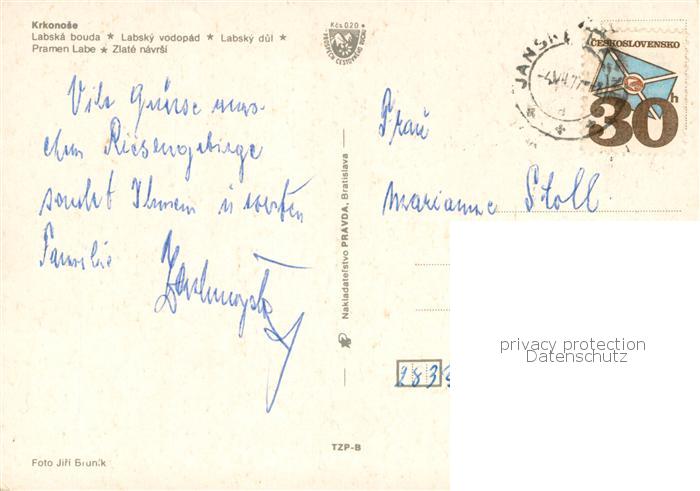 Krkonoše
Labská bouda ★ Labský vodopád ★ Labský důl ★
Pramen Labe ★ Zlaté návrší
Kčs 0,20
JANSKÉ
ČESKOSLOVENSKO
30 h
Viele Grüsse aus
dem Riesengebirge
sendet Ihnen u werten
Familie
Frau
Marianne Stoll
Nakladatelstvo PRAVDA, Bratislava
privacy protection
Datenschutz
283
TZP-B
Foto Jiří Bruník